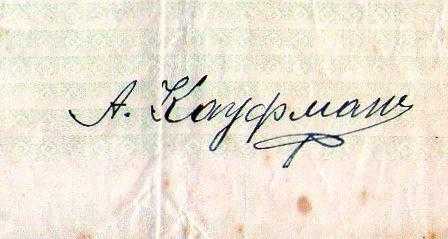 А. Кауфман